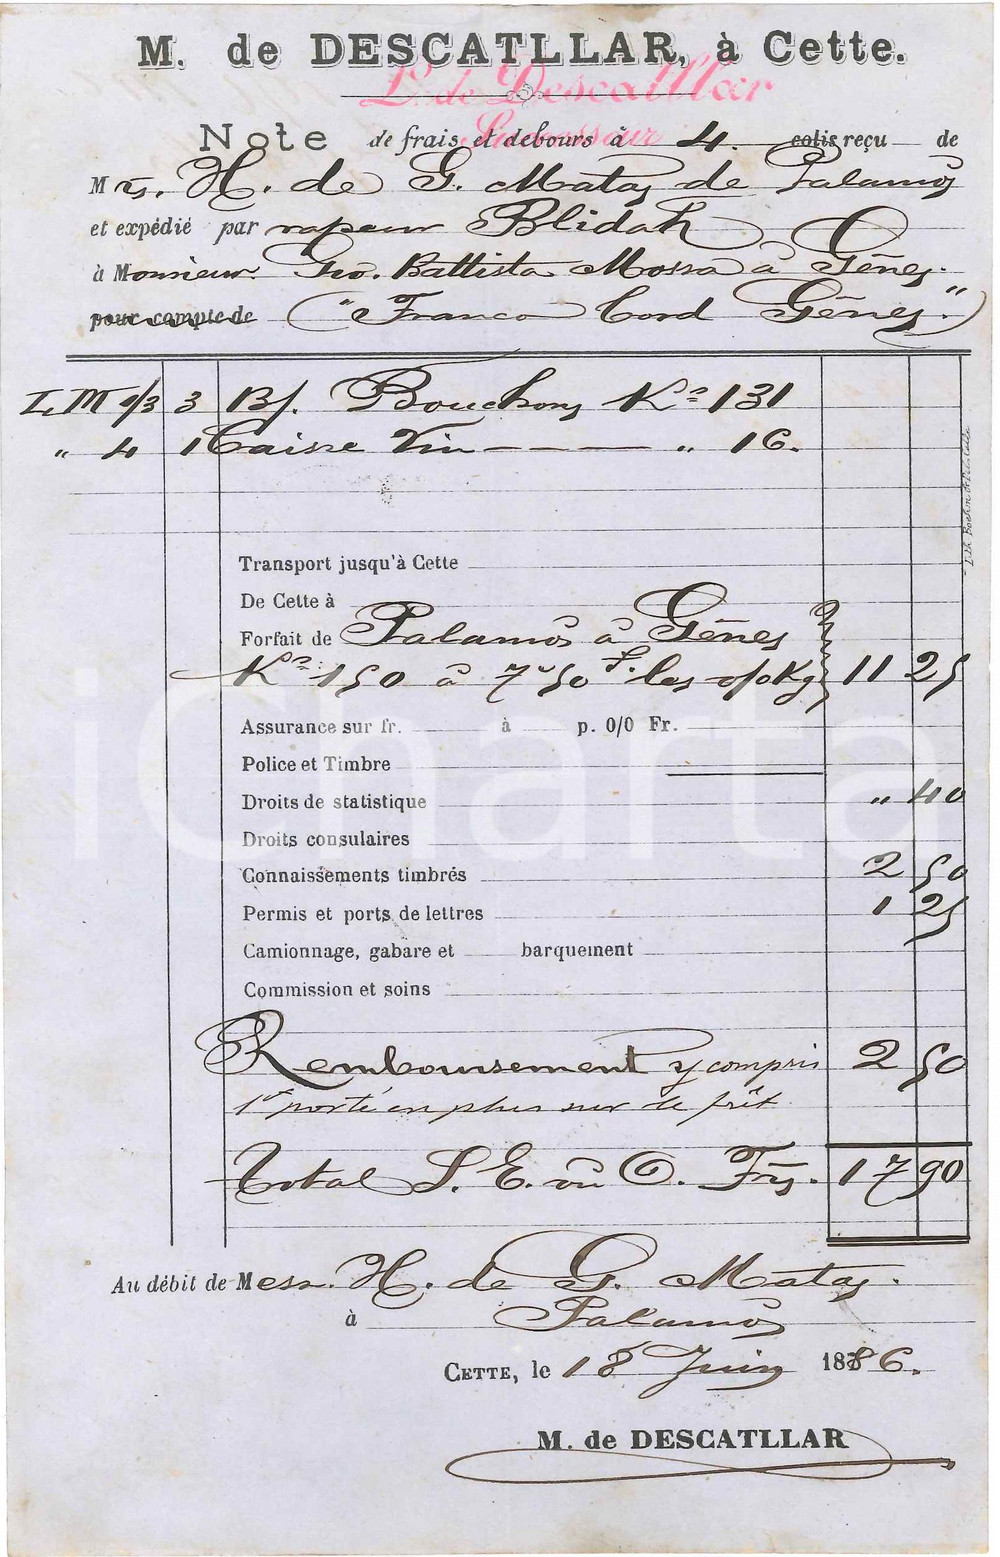 M. de DESCATLLAR, à Cette.
L. de Descatllar
Successeur
Note de frais et debours à 4 colis reçu de
Mrs. H. de G. Matas de Palamós
et expédié par vapeur Blidah
à Monsieur Gio. Battista Mossa à Gênes.
pour compte de ("Franco bord Gênes")
L. M 1/3 3 Bs. Bouchons Ko 131
" 4 1 Caisse Vin " 16.
Lith. Boehm
Transport jusqu'à Cette
De Cette à
Forfait de Palamós à Gênes
Ko 150 à 7.50 f. les o/o Kg 11 25
Assurance sur fr. à p. 0/0 Fr.
Police et Timbre
Droits de statistique " 40
Droits consulaires
Connaissements timbrés 2 50
Permis et ports de lettres 1 25
Camionnage, gabare et barquement
Commission et soins
Remboursement y compris 2 50
1f porté en plus sur le frêt
Total S. E. ou O. Frs. 17 90
Au débit de Mess. H. de G. Matas.
à Palamós
CETTE, le 18 Juin 1886.
M. de DESCATLLAR
iCharta